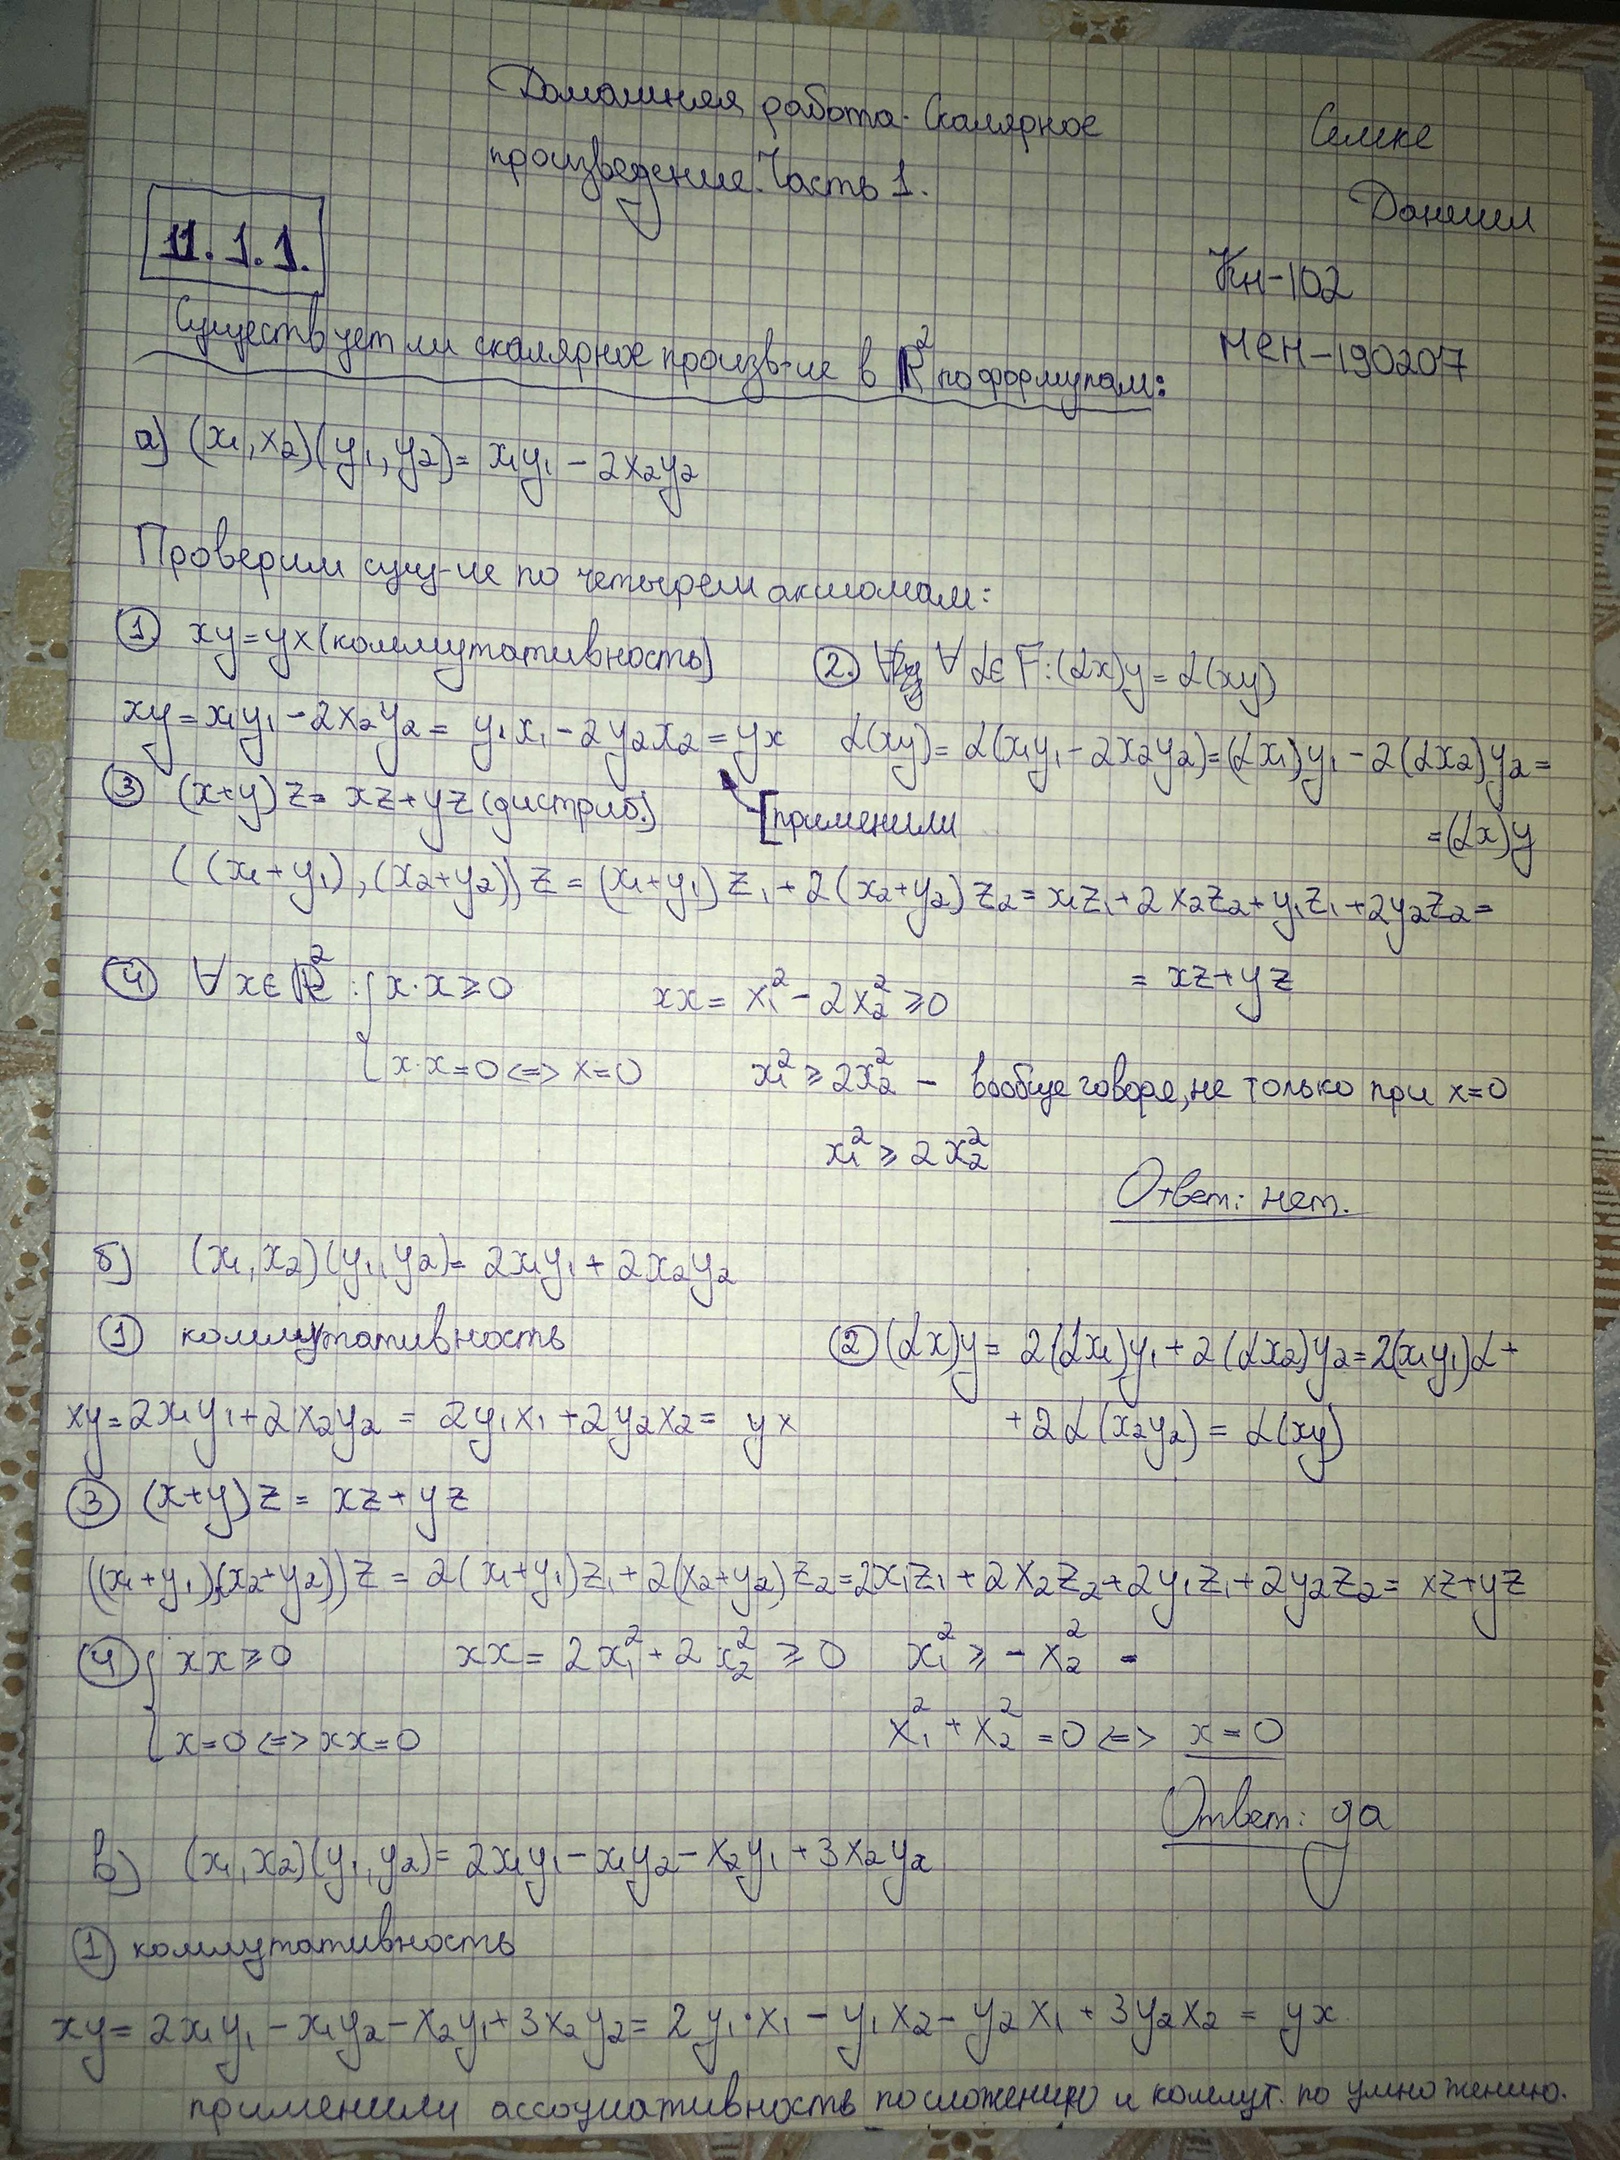 Домашняя работа. Скалярное
произведение. Часть 1.
Семке
Даниил
КН-102
МЕН-190207
11.1.1.
Существует ли скалярное произв-ие в R² по формулам:
а) (x₁, x₂)(y₁, y₂) = x₁y₁ - 2x₂y₂
Проверим сущ-ие по четырем аксиомам:
① xy = yx (коммутативность)
②. ∀ α ∈ F: (αx)y = α(xy)
xy = x₁y₁ - 2x₂y₂ = y₁x₁ - 2y₂x₂ = yx
α(xy) = α(x₁y₁ - 2x₂y₂) = (αx₁)y₁ - 2(αx₂)y₂ =
= (αx)y
③ (x+y)z = xz + yz (дистриб.)
[применили
((x₁+y₁), (x₂+y₂))z = (x₁+y₁)z₁ + 2(x₂+y₂)z₂ = x₁z₁ + 2x₂z₂ + y₁z₁ + 2y₂z₂ =
= xz + yz
④ ∀ x ∈ R² : { x·x ≥ 0
xx = x₁² - 2x₂² ≥ 0
x·x = 0 <=> x = 0
x₁² ≥ 2x₂² - вообще говоря, не только при x=0
x₁² ≥ 2x₂²
Ответ: нет.
б) (x₁, x₂)(y₁, y₂) = 2x₁y₁ + 2x₂y₂
① коммутативность
② (αx)y = 2(αx₁)y₁ + 2(αx₂)y₂ = 2(x₁y₁)α +
xy = 2x₁y₁ + 2x₂y₂ = 2y₁x₁ + 2y₂x₂ = yx
+ 2α(x₂y₂) = α(xy)
③ (x+y)z = xz + yz
((x₁+y₁),(x₂+y₂))z = 2(x₁+y₁)z₁ + 2(x₂+y₂)z₂ = 2x₁z₁ + 2x₂z₂ + 2y₁z₁ + 2y₂z₂ = xz + yz
④ { xx ≥ 0
xx = 2x₁² + 2x₂² ≥ 0 x₁² ≥ - x₂² -
x = 0 <=> xx = 0
x₁² + x₂² = 0 <=> x = 0
Ответ: да
в) (x₁, x₂)(y₁, y₂) = 2x₁y₁ - x₁y₂ - x₂y₁ + 3x₂y₂
① коммутативность
xy = 2x₁y₁ - x₁y₂ - x₂y₁ + 3x₂y₂ = 2y₁·x₁ - y₁x₂ - y₂x₁ + 3y₂x₂ = yx.
применили ассоциативность по сложению и коммут. по умножению.